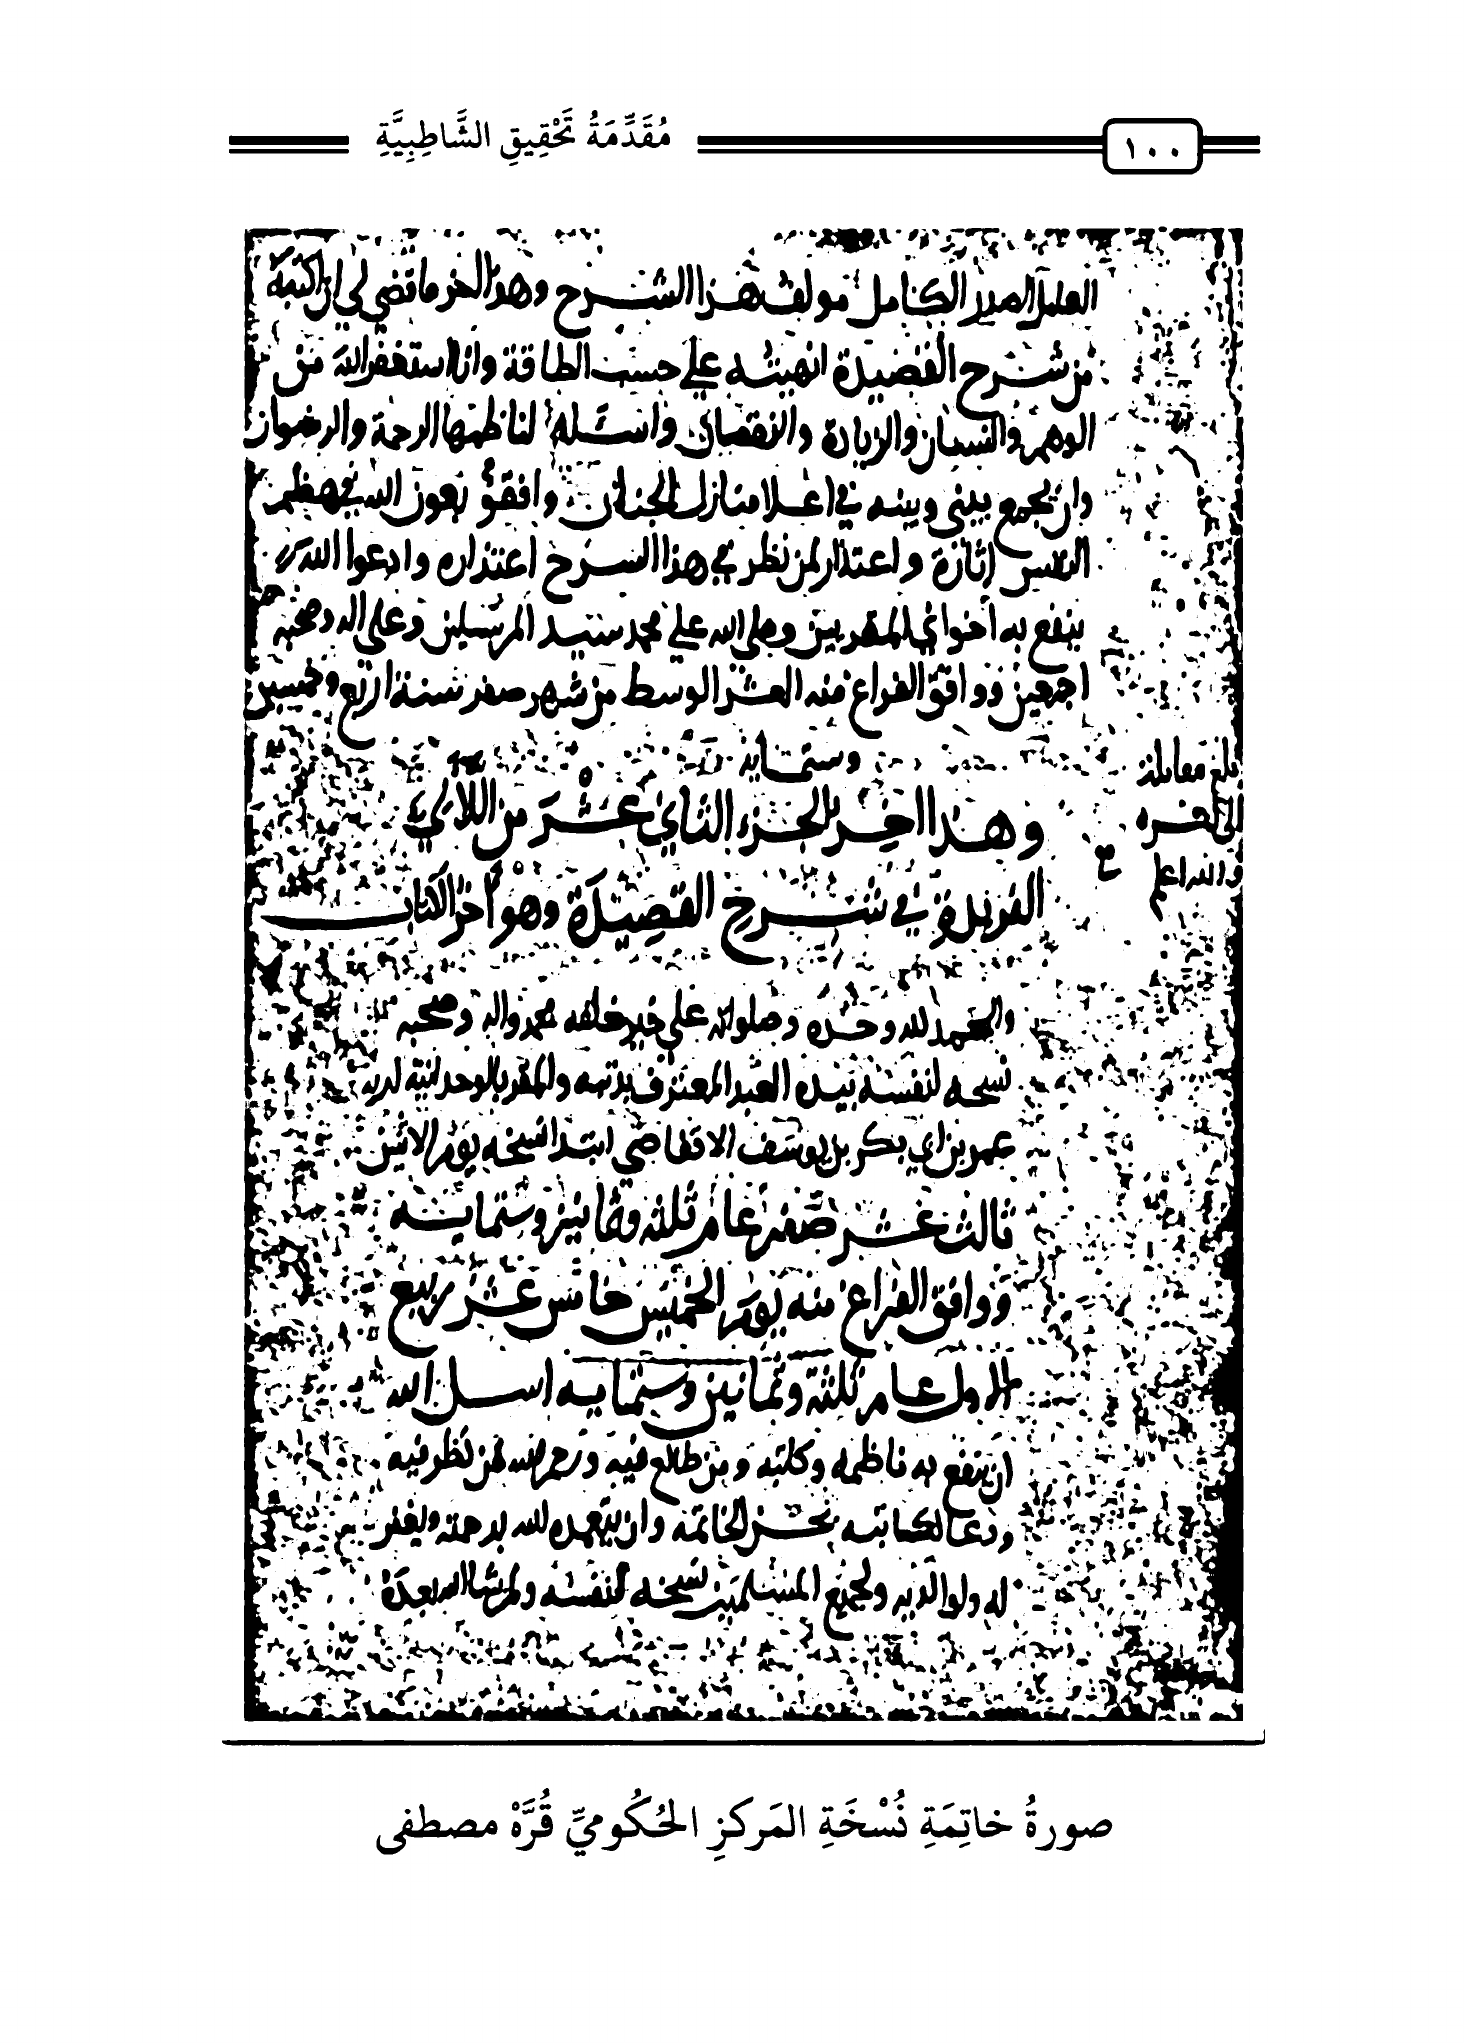 ١٠٠
مُقَدِّمَةُ تَحْقِيقِ الشَّاطِبِيَّةِ
الصدر الكامل مولف هذا الشرح وهذا اخر ما قضى لى ان اكتبه
من شرح القصيدة انهيته على حسب الطاقة وانا استغفر الله من
الوهم والنسيان والزيادة والنقصان واسئله لناظمها الرحمة والرضوان
وان يجمع بينى وبينه في اعلا منازل الجنان وافقو بعون الله
واعتذار لمن نظر في هذا الشرح اعتذاره وادعوا الله
ينفع به اخواني المقريين وصلى الله على محمد سيد المرسلين وعلى اله وصحبه
اجمعين ووافق الفراغ منه العشر الوسط من شهر صفر سنة اربع وخمسين
وستمايه
وهذا اخِر الجزء الثاني عَشْر من اللآلئ
الفريدة في شرح القصيدة وهو آخر الكتاب
بلغ مقابلة
الى اخره
والله اعلم
والحمد لله وحده وصلواته على خير خلقه محمد واله وصحبه
نسخه لنفسه بيده العبد المعترف بذنبه والمقر بالوحدانية لربه
عمر بن ابي بكر بن يوسف ابتدا نسخه يوم الاثنين
ثالث عشر صفر عام ثلثه وثمانين وستمايه
ووافق الفراغ منه يوم الخميس خامس عشر ربيع
الاول عام ثلثة وثمانين وستمايه اسل الله
ان ينفع به ناظمه وكاتبه ومن طالع فيه ورحم الله من نظر فيه
ودعا لكاتبه بحسن الخاتمه وان يتغمده الله برحمته ويغفر
له ولوالديه ولجميع المسلمين نسخه لنفسه ولمن شا الله بعده
صورةُ خاتِمَةِ نُسْخَةِ المَركزِ الحُكُوميِّ قُرَّهْ مصطفى